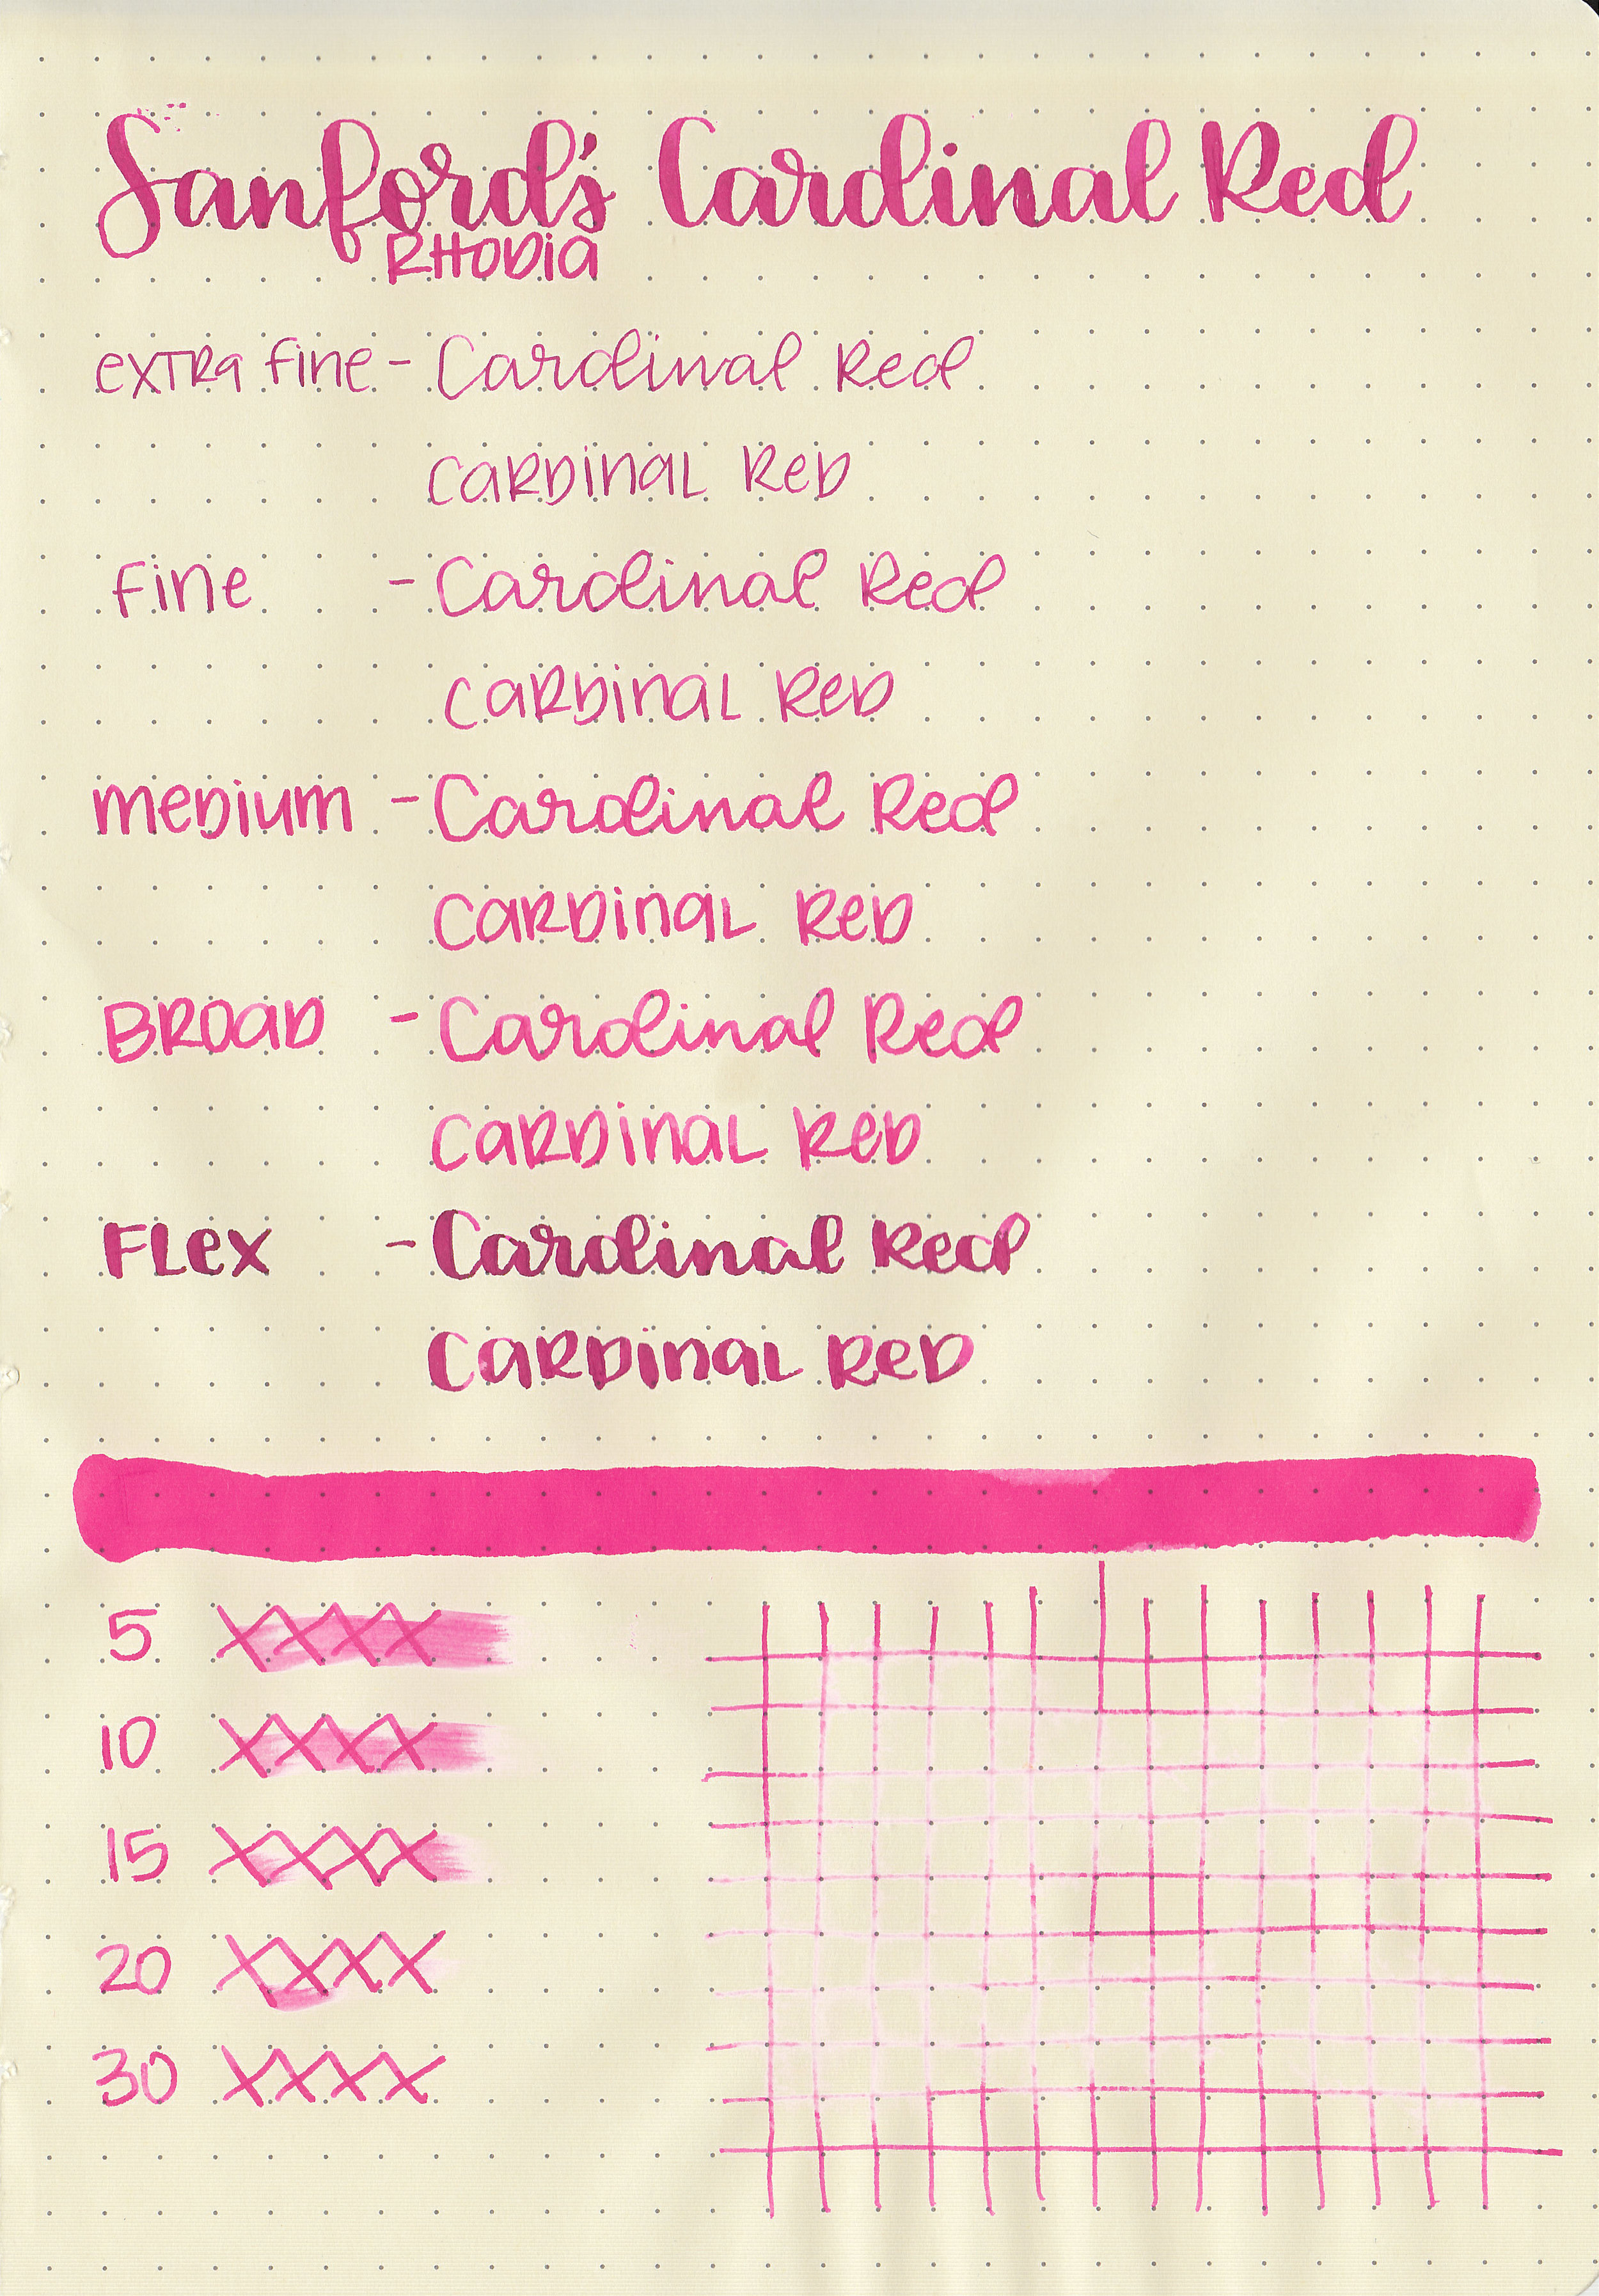 Sanford's Cardinal Red
RHODIA
extra fine - Cardinal Red
CARDINAL RED
fine - Cardinal Red
CARDINAL RED
MEDIUM - Cardinal Red
CARDINAL RED
BROAD - Cardinal Red
CARDINAL RED
FLEX - Cardinal Red
CARDINAL RED
5 XXXX
10 XXXX
15 XXXX
20 XXXX
30 XXXX